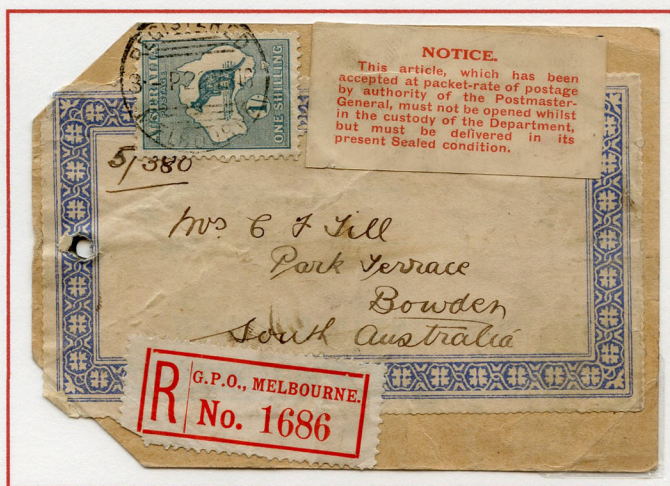 REGISTERED
AUSTRALIA
POSTAGE
ONE SHILLING
NOTICE.
This article, which has been
accepted at packet-rate of postage
by authority of the Postmaster-
General, must not be opened whilst
in the custody of the Department,
but must be delivered in its
present Sealed condition.
5/380
Mrs C F Till
Park Terrace
Bowden
South Australia
R
G.P.O., MELBOURNE.
No. 1686